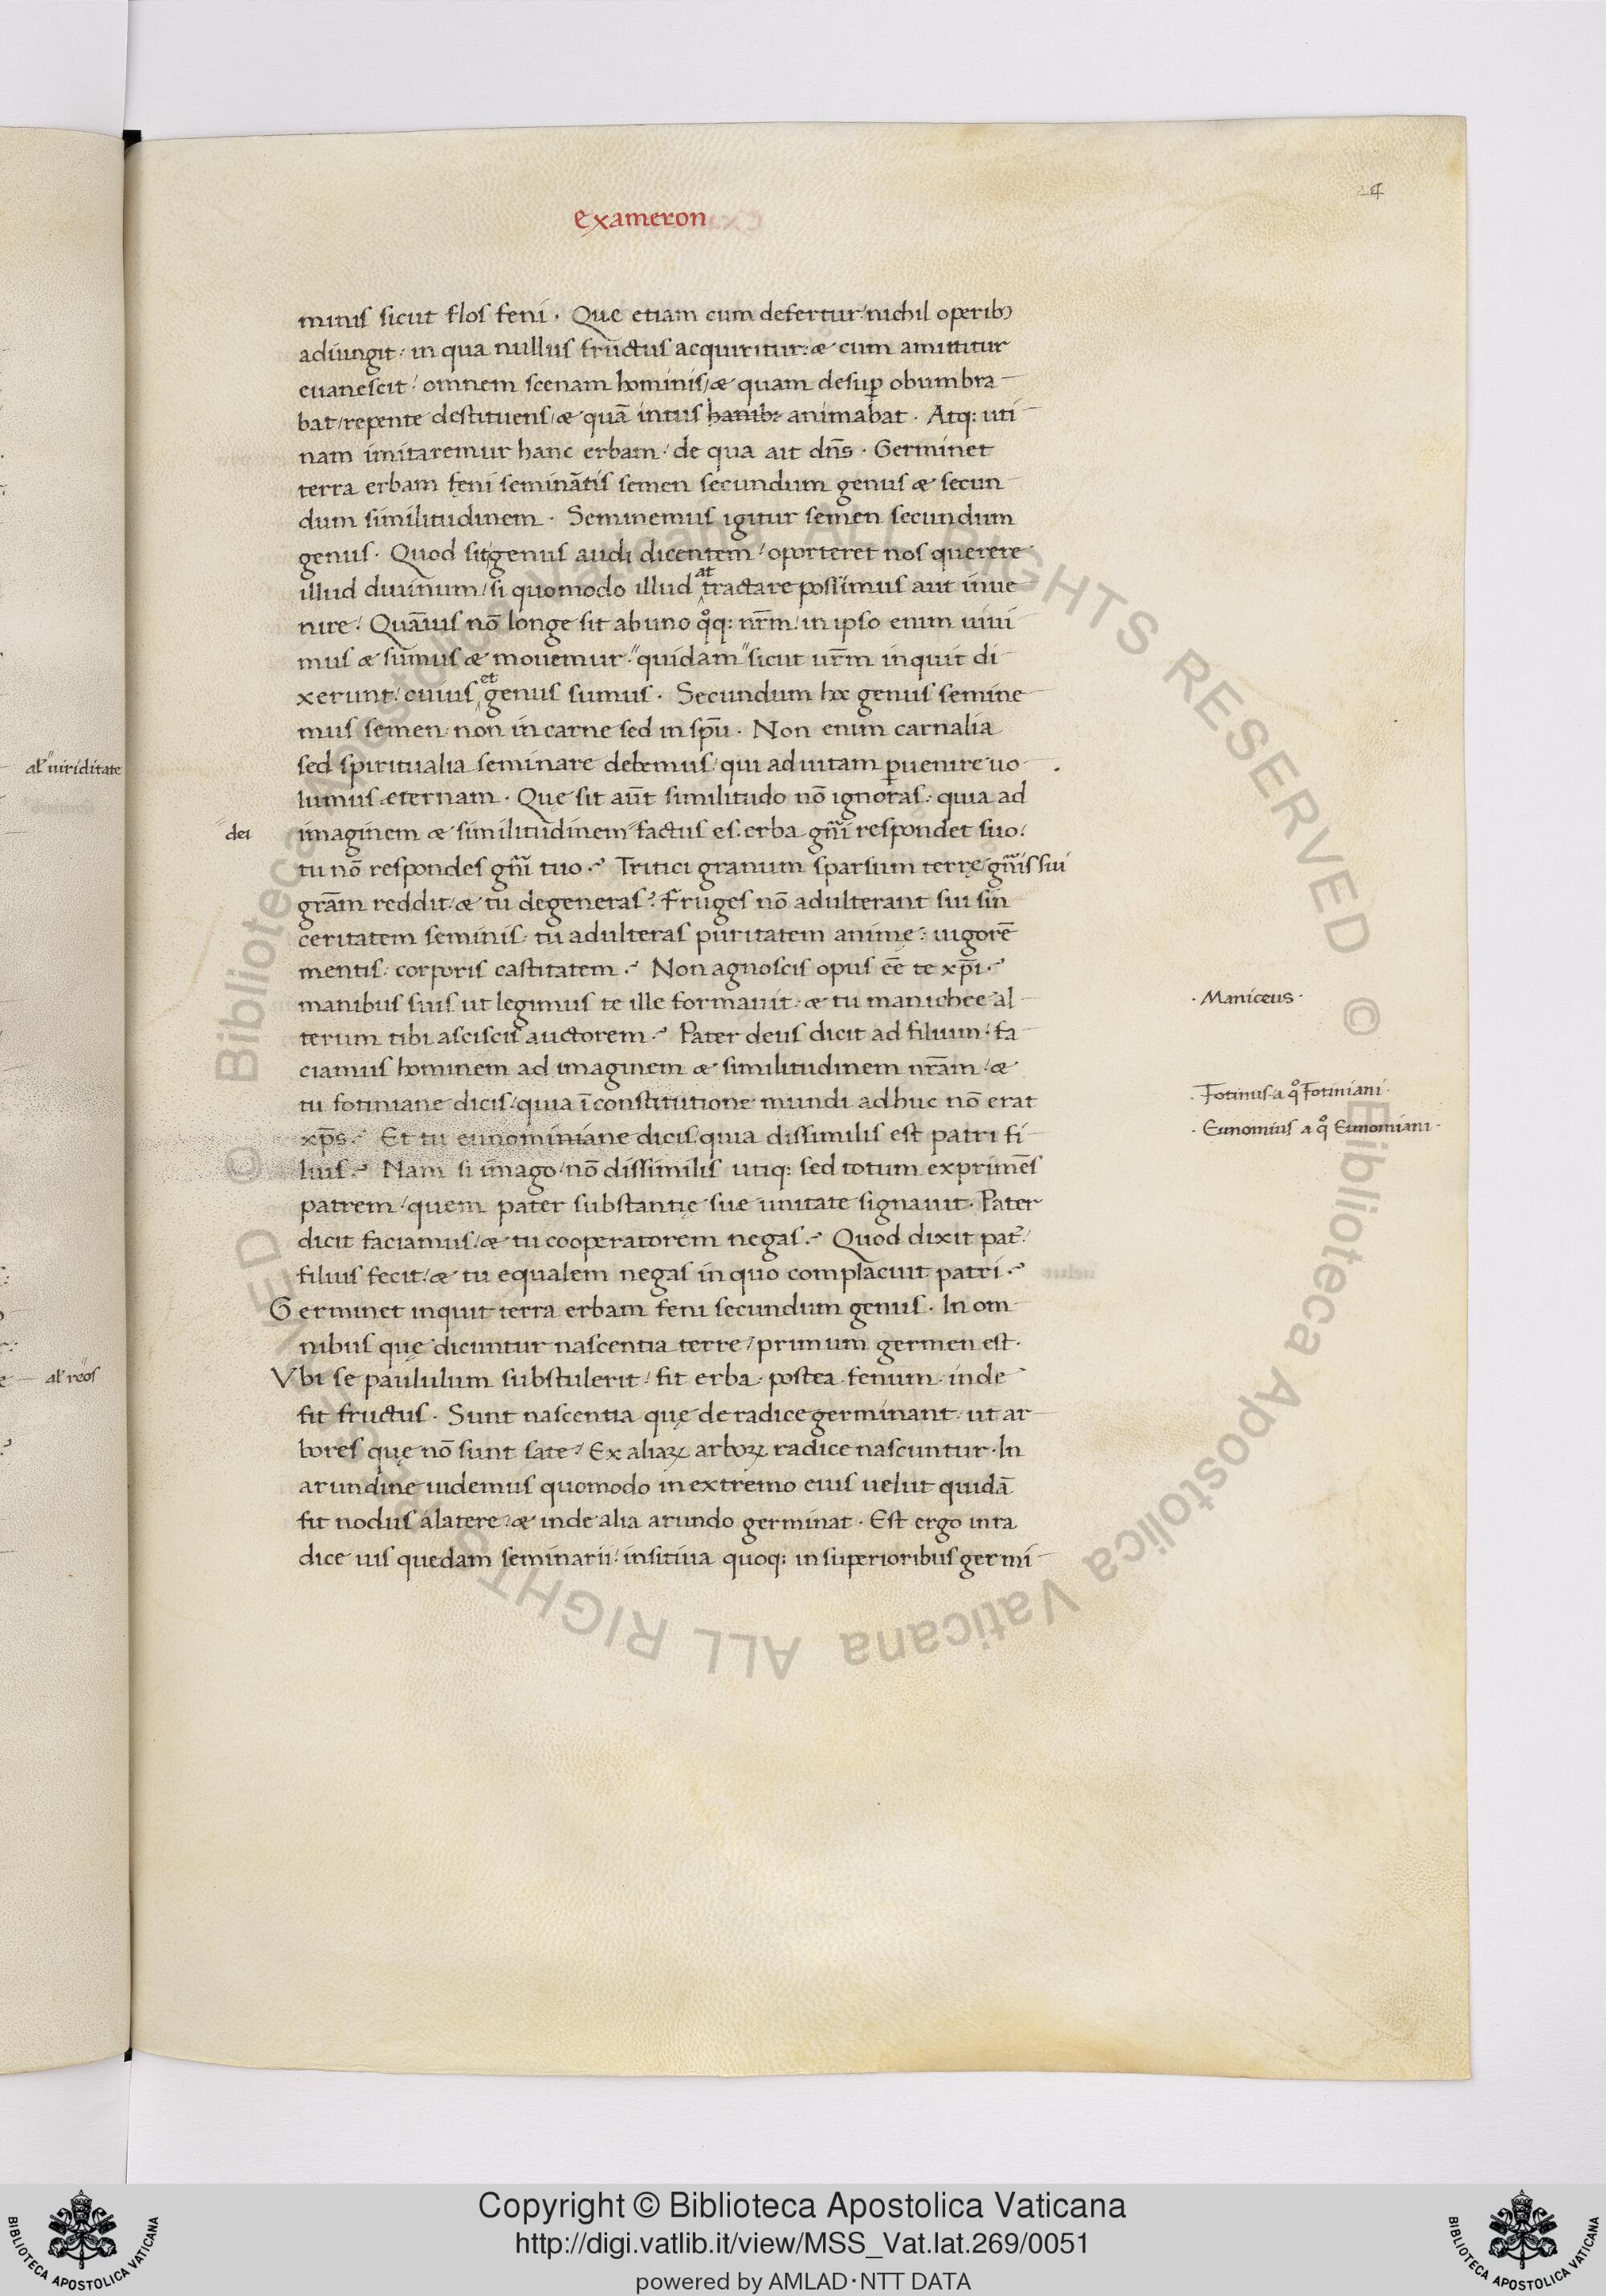 24
exameron
minis sicut flos feni · Que etiam cum defertur / nichil operibꝫ
adiungit : in qua nullus fructus acquiritur : æ cum amittitur
euanescit / omnem scenam hominis / æ quam desuꝑ obumbra
bat / repente destituens / æ quā intus hanibꝫ animabat · Atqꝫ uti
nam imitaremur hanc erbam / de qua ait dn̄s · Germinet
terra erbam feni seminātis semen secundum genus æ secun
dum similitudinem · Seminemus igitur semen secundum
genus · Quod sit / genus audi dicentem / oporteret nos querere
illud diuinum / si quomodo illud attractare possimus aut inue
nire / Quāuis nō longe sit ab uno q̊qꝫ nr̄m / in ipso enim uiui
mus æ sumus æ mouemur · "quidam" sicut ur̄m inquit di
xerunt / cuius et genus sumus · Secundum hoc genus semine
mus semen non in carne sed in sp̄u · Non enim carnalia
al' uiriditate
sed spiritualia seminare debemus / qui ad uitam ꝑuenire uo
lumus eternam · Quę sit aūt similitudo nō ignoras : quia ad
dei
imaginem æ similitudinem factus es. erba gn̄i respondet suo /
tu nō respondes gn̄i tuo ·? Tritici granum sparsum terrę / gn̄is sui
grām reddit / æ tu degeneras? Fruges nō adulterant sui sin
ceritatem seminis · tu adulteras puritatem animę : uigorē
mentis : corporis castitatem ·? Non agnoscis opus eē te xp̄i ·?
manibus suis ut legimus te ille formauit : æ tu manichee al
· Maniceus ·
terum tibi asciscis auctorem ·? Pater deus dicit ad filium · fa
ciamus hominem ad imaginem æ similitudinem nr̄am / æ
tu fotiniane dicis / quia ī constitutione mundi adhuc nō erat
· Fotinus · a q̊ Fotiniani ·
xp̄s ·? Et tu eunominiane dicis · quia dissimilis est patri fi
· Eunomius a q̊ Eunomiani ·
lius ·? Nam si imago / nō dissimilis utiqꝫ sed totum exprimēs
patrem / quem pater substantię sue unitate signauit · Pater
dicit faciamus / æ tu cooperatorem negas ·? Quod dixit pat̃ /
filius fecit / æ tu equalem negas in quo complacuit patri ·?
Germinet inquit terra erbam feni secundum genus · In om
nibus quę dicuntur nascentia terre / primum germen est ·
al' reos
Vbi se paululum substulerit / fit erba · postea fenum · inde
fit fructus · Sunt nascentia quę de radice germinant · ut ar
bores quę nō sunt sate / Ex aliaꝝ arboꝝ radice nascuntur · In
arundine uidemus quomodo in extremo eius uelut quidā
fit nodus á latere / æ inde alia arundo germinat · Est ergo in ra
dice uis quedam seminarii / insitiua quoqꝫ in superioribus germi
Copyright © Biblioteca Apostolica Vaticana
http://digi.vatlib.it/view/MSS_Vat.lat.269/0051
powered by AMLAD·NTT DATA
BIBLIOTECA APOSTOLICA VATICANA
BIBLIOTECA APOSTOLICA VATICANA
© Biblioteca Apostolica Vaticana ALL RIGHTS RESERVED © Biblioteca Apostolica Vaticana ALL RIGHTS RESERVED